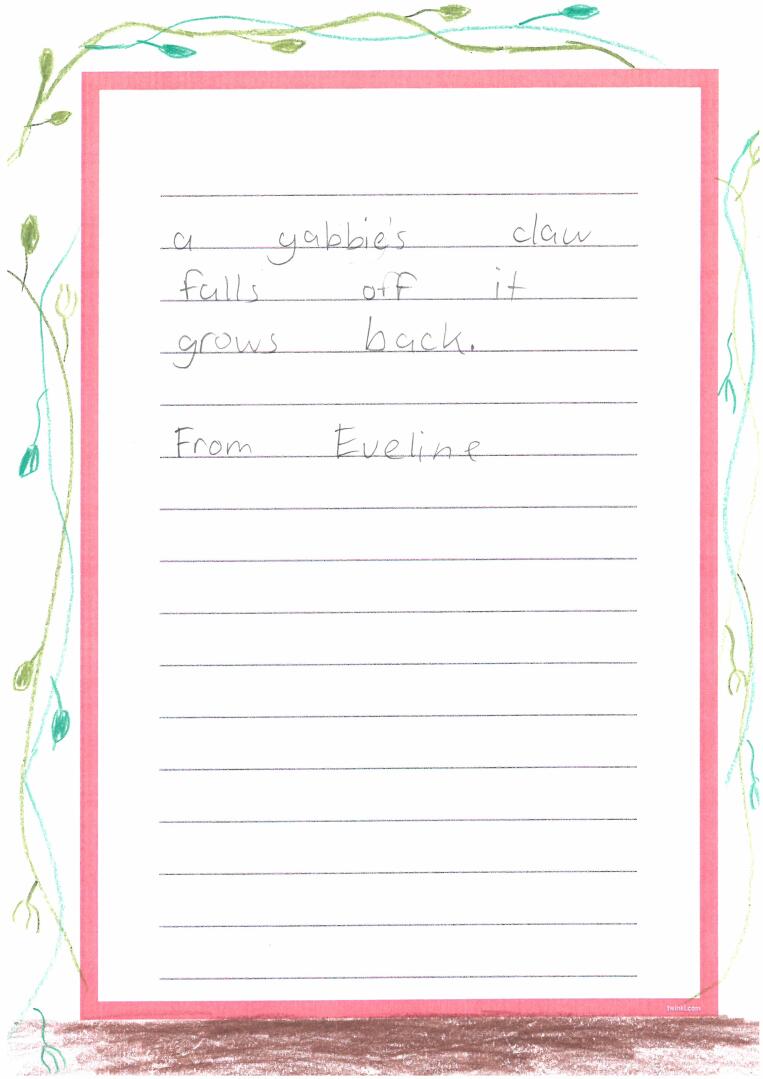 a yabbie's claw
falls off it
grows back.
From Eveline
twinkl.com